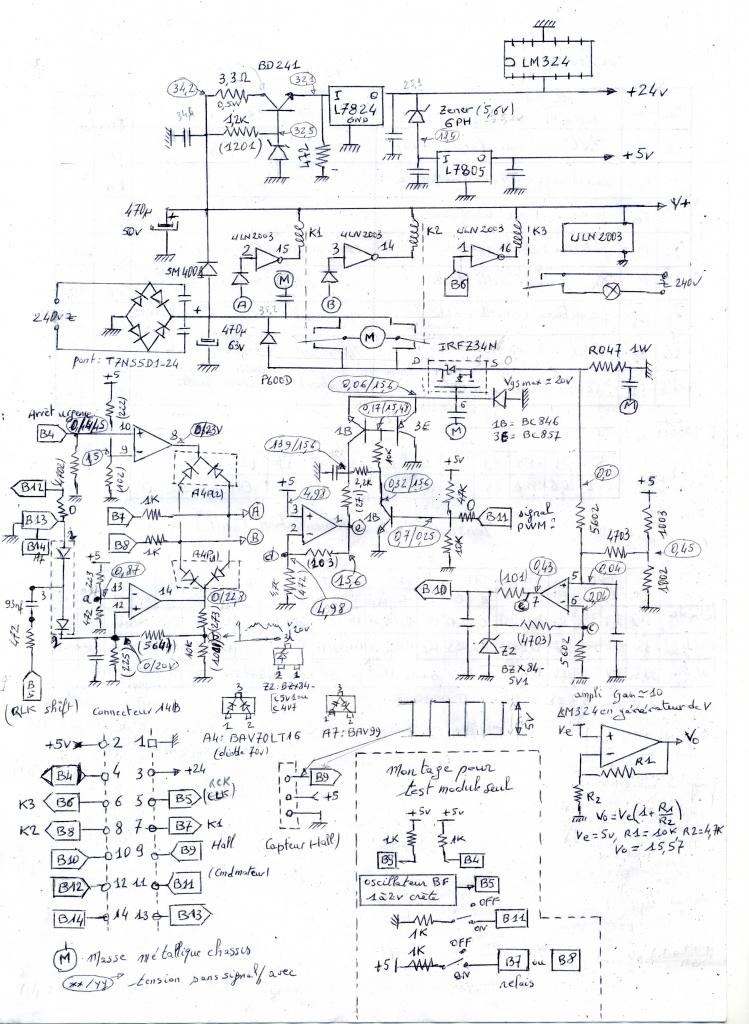 LM324
BD241
34,2
3,3Ω
0,5W
32,1
I O
L7824
GND
+24v
12K
(1201)
32,5
472
Zener (5,6V)
6PH
I O
L7805
+5v
V+
470µ
50v
ULN2003
2 15
K1
ULN2003
3 14
K2
ULN2003
1 16
K3
ULN2003
SM400
A
M
B
B6
240v
240v
+
pont: T7NSSD1-24
470µ
63v
P600D
M
IRFZ34N
D S
Vgs max = 20v
6
M
R047 1W
M
+5
(222)
Arrêt urgence
B4
10
9
8
0/23V
15
(102)
1B
3E
0,06/15,6
1B = BC846
3E = BC857
13,9/15,6
10K
2,2K
(271)
+5v
47K
B12
B13
B14
A7
B7
1K
A
B8
1K
B
+5
4,98
3
2
1
(103)
15,6
4,98
1B
0,7/0,25
10K
B11
signal
PWM?
0,0
5602
4703
+5
1003
1002
0,45
+5
223
0,87
13
12
14
472
3
472
(564)
(225)
0/20V
10K
(273)
20v
B10
(101)
0,43
7
5
6
0,04
(4703)
5602
Z2
BZX84-
5V1
B
(RLK shift)
Connecteur 14B
A4: BAV70LT16
(diode 70v)
Z2: BZX84-
C5V1 ou
C4V7
A7: BAV99
5V
ampli Gain ≃ 10
LM324 en générateur de V
Ve
Vo
R1
R2
Vo = Ve(1 + R1/R2)
Ve = 5v, R1 = 10K R2 = 4,7K
Vo = 15,57
+5v 2 1
B4 4 3 +24
K3 B6 6 5 B5
K2 B8 8 7 B7 K1
B10 10 9 B9 Hall
B12 12 11 B11 (Cmd moteur)
B14 14 13 B13
B9
+5
Capteur Hall
Montage pour
test module seul
+5v +5v
1K 1K
B9 B4
oscillateur BF
1 à 2v crête
B5
OFF
1K
ON
B11
1K
OFF
+5
ON
B7 ou B8
relais
M = masse métallique chassis
xx/yy tension sans signal / avec